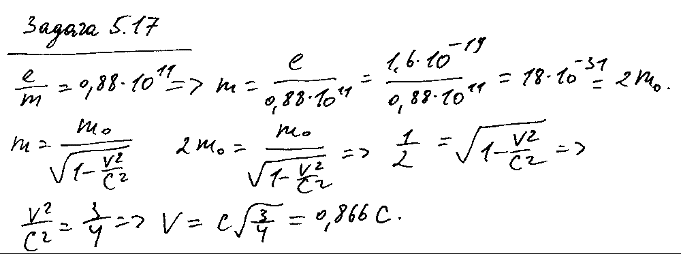 Задача 5.17
e/m = 0,88·10¹¹ => m = e/(0,88·10¹¹) = (1,6·10⁻¹⁹)/(0,88·10¹¹) = 18·10⁻³¹ = 2m₀.
m = m₀/√(1-V²/C²) 2m₀ = m₀/√(1-V²/C²) => 1/2 = √(1-V²/C²) =>
V²/C² = 3/4 => V = C√(3/4) = 0,866 C.